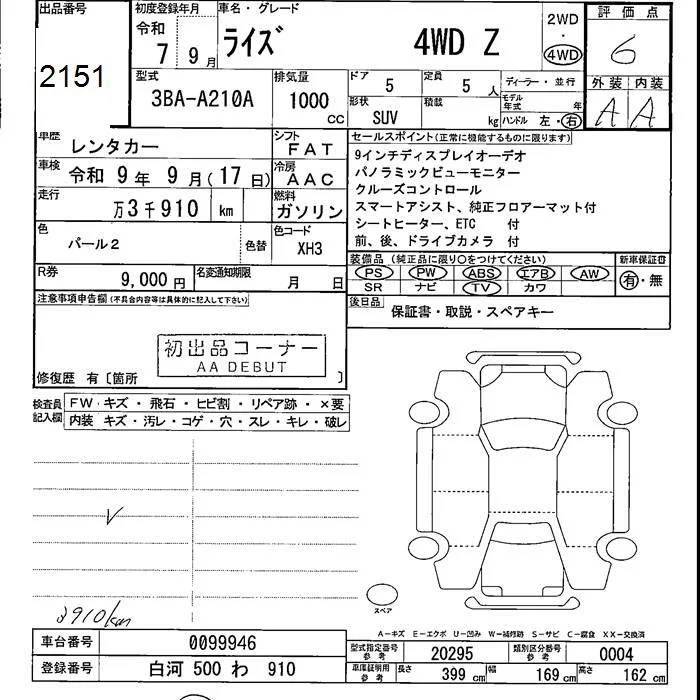 出品番号 2151
初度登録年月 令和 7 9 月
車名・グレード ライズ 4WD Z
2WD ・ 4WD
評価点 6
型式 3BA-A210A
排気量 1000 CC
ドア 5
定員 5 人
ディーラー・並行
形状 SUV
積載 kg
モデル年式 年
ハンドル 左・右
外装 内装
A A
車歴 レンタカー
シフト FAT
車検 令和 9 年 9 月 ( 17 日)
冷房 AAC
走行 万 3 千 910 km
燃料 ガソリン
色 パール2 色替
色コード XH3
R券 9,000 円
名変通知期限 月 日
セールスポイント(正常に機能するものに限ります)
9インチディスプレイオーデオ
パノラミックビューモニター
クルーズコントロール
スマートアシスト、純正フロアーマット付
シートヒーター、ETC 付
前、後、ドライブカメラ 付
装備品 (純正品に限り○をつけてください)
新車保証書
PS PW ABS エアB AW
SR ナビ TV カワ
有・無
後日品 保証書・取説・スペアキー
注意事項申告欄(不具合内容等は具体的に記入して下さい)
初出品コーナー
AA DEBUT
修復歴 有〔箇所 〕
検査員記入欄
FW キズ・飛石・ヒビ割・リペア跡・×要
内装 キズ・汚レ・コゲ・穴・スレ・キレ・破レ
3910km
スペア
A-キズ E-エクボ U-凹み W-補修跡 S-サビ C-腐食 XX-交換済
車台番号 0099946
登録番号 白河 500 わ 910
型式指定番号 参考 20295
類別区分番号 参考 0004
車庫証明用 参考 長さ 399 cm 幅 169 cm 高さ 162 cm